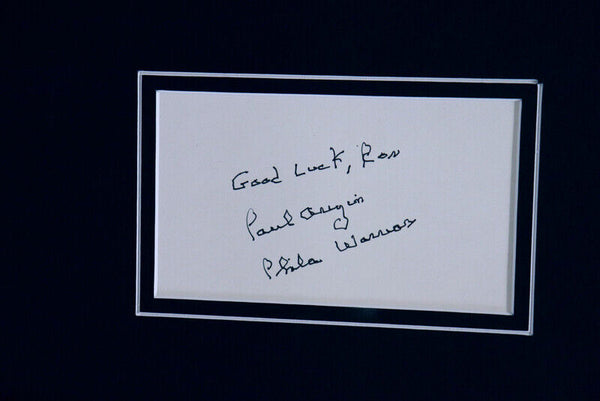 Good Luck, Ron
Paul Arizin
Phila Warriors